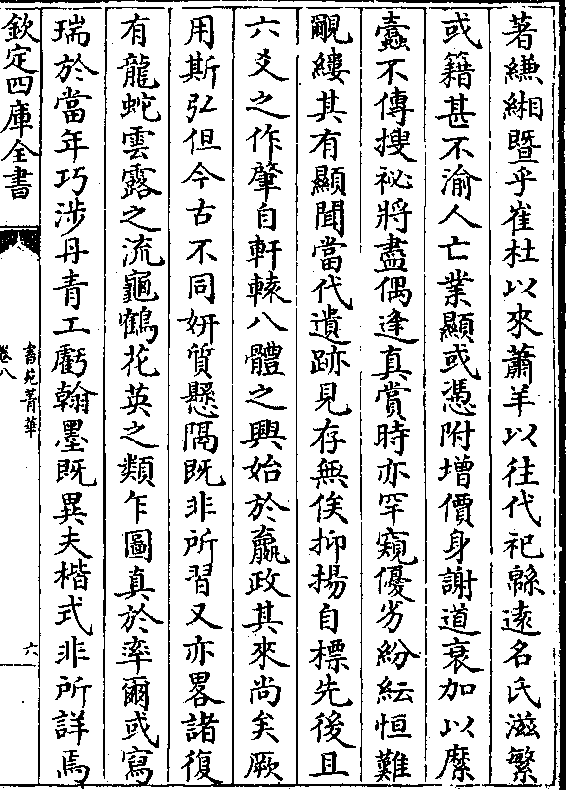 著縑緗暨乎崔杜以來蕭羊以往代祀緜遠名氏滋繁
或籍甚不渝人亡業顯或憑附增價身謝道衰加以糜
蠹不傳搜祕將盡偶逢真賞時亦罕窺優劣紛紜恒難
覼縷其有顯聞當代遺跡見存無俟抑揚自標先後且
六爻之作肇自軒轅八體之興始於嬴政其來尚矣厥
用斯弘但今古不同妍質懸隔既非所習又亦畧諸復
有龍蛇雲露之流龜鶴花英之類乍圖真於率爾或寫
瑞於當年巧涉丹青工虧翰墨既異夫楷式非所詳焉
欽定四庫全書
書苑菁華
卷八
六